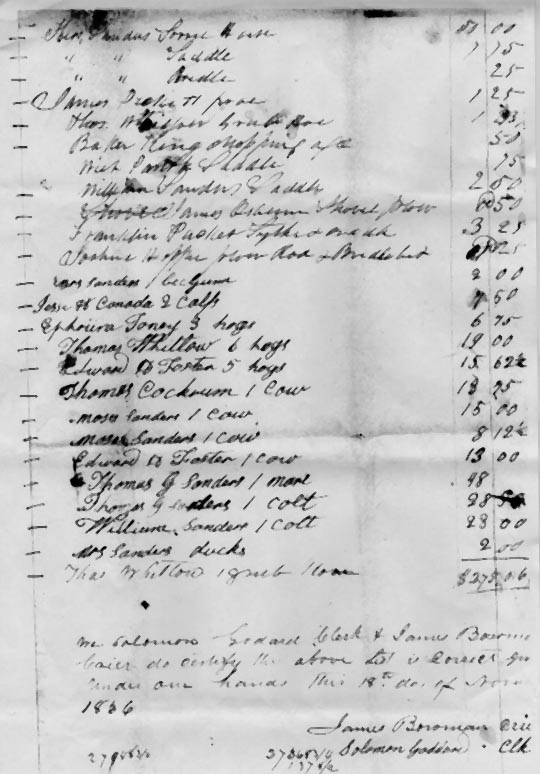 Sanders Some Horse 00
" " Saddle 1 75
" " Bridle 25
James 1 25
Thos Whitlow Grub Hoe 1
Baker King Chopping 50
Saddle 75
William Sanders Saddle 2 50
James Osburn Shovel plow 50
Franklin Pucket & cradle 3 25
plow Rod & Bridle bit 25
Mrs Sanders 1 2 00
Jesse H Canada 2 Calfs 7 50
Ephraim Toney 3 hogs 6 75
Thomas Whitlow 6 hogs 19 00
Edward D Foster 5 hogs 15 62½
Thomas Cockrum 1 Cow 13 25
Moses Sanders 1 Cow 15 00
Moses Sanders 1 Cow 8 12½
Edward D Foster 1 cow 13 00
Thomas G Sanders 1 mare 98
Thomas G Sanders 1 colt 28 50
William Sanders 1 Colt 28 00
Mrs Sanders ducks 2 00
Thos Whitlow 1 grub Hoe $275
We Solomon Godard Clerk & James Bowm
Crier do certify the above List is Correct
under our hands this 18th day of Nov
1836
James Bowman Crie
Solomon Goddard Clk